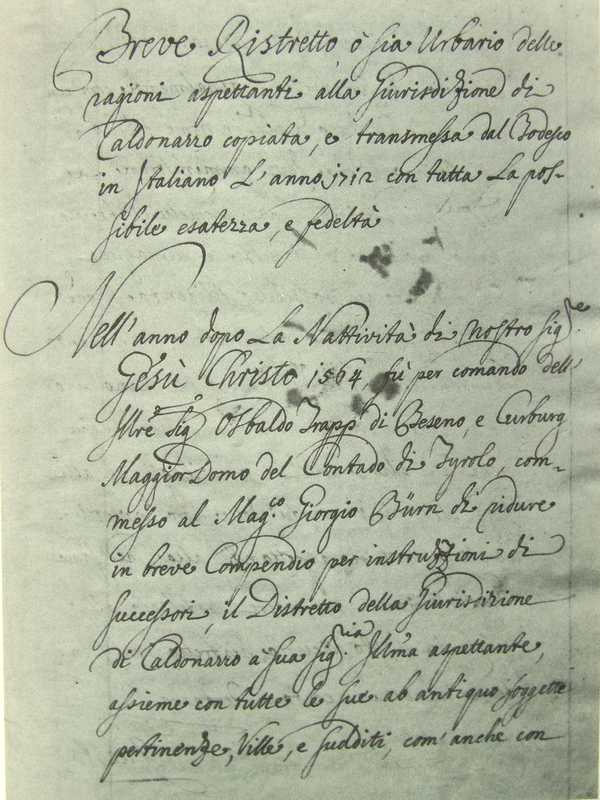 Breve Ristretto, ò sia Urbario delle
ragioni aspettanti alla Giurisdizione di
Caldonazzo copiata, e transmessa dal Todesco
in Italiano L'anno 1712 con tutta La pos-
sibile esatezza, e fedeltà
Nell'anno dopo La Nattività di nostro Sig.re
Giesù Christo 1564, fù per comando dell'
Illre Sig. Osbaldo Trapp di Beseno, e Curburg
Maggior Domo del Contado di Tyrolo, com-
messo al Mag.co Giorgio Bürn di ridure
in breve Compendio per instruzzioni di
successori, il Distretto della Giurisdizione
di Caldonazzo à sua Sig.ria Illma aspettante,
assieme con tutte le sue ab antiquo soggette
pertinenze, Ville, e sudditi, com'anche con